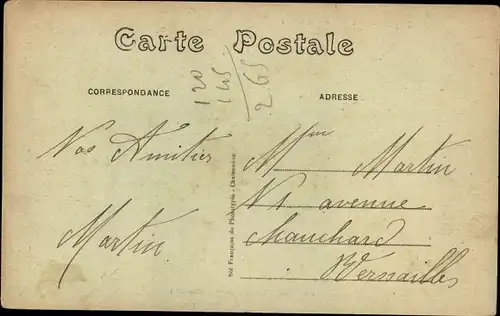 Carte Postale
CORRESPONDANCE
ADRESSE
120
145
265
Nos Amitiés
Martin
Mme Martin
N 1 avenue
Mauchard
Versailles
Sté Française de Phototypie - Chateaudun